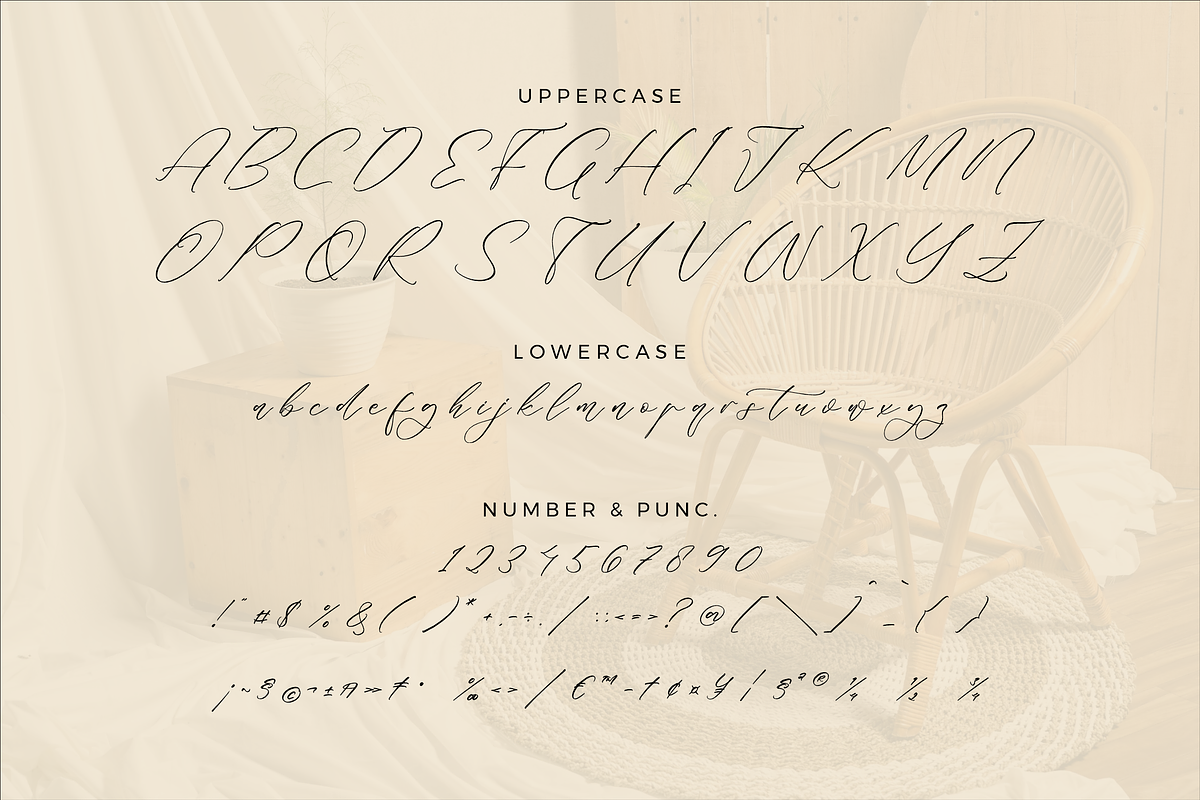 UPPERCASE
A B C D E F G H I J K M N
O P Q R S T U V W X Y Z
LOWERCASE
a b c d e f g h i j k l m n o p q r s t u v w x y z
NUMBER & PUNC.
1 2 3 4 5 6 7 8 9 0
! " # $ % & ( ) * + , - ÷ . / : ; < = > ? @ [ \ ] ^ _ ` { }
¡ ~ © ¬ ± » · ‰ < > / € ™ - † ¢ ¤ ¥ ¦ § ª ® ¼ ½ ¾